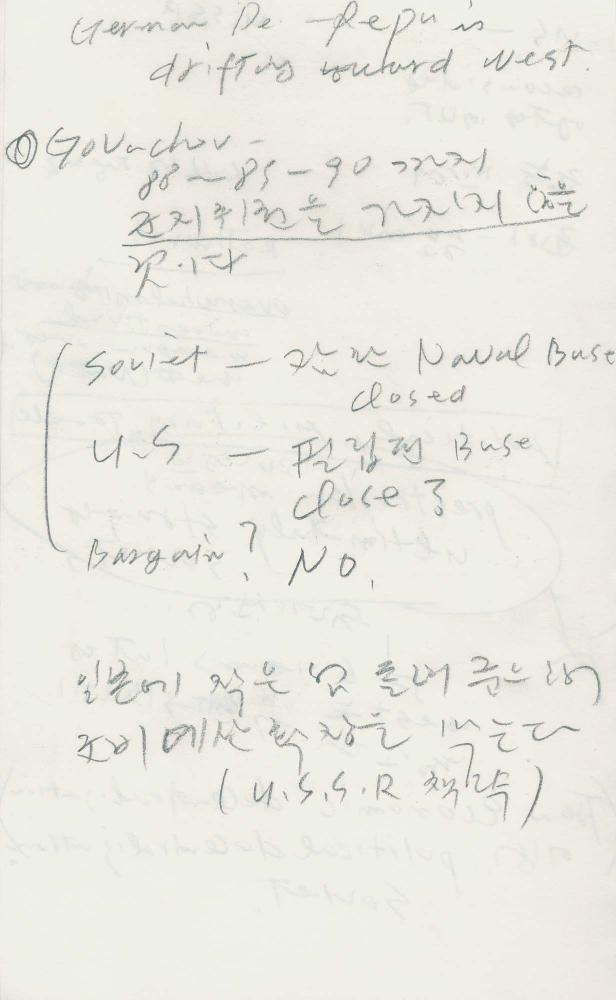 German De. Repu is
drifting toward West.
① Gorvachov -
88~89-90 까지
전지위협을 가지지 않을
것이다
Soviet — 캄란 Naval Base
closed
U.S — 필립핀 Base
close 3
Bargain? NO.
일본에 작은 섬 돌려 줌으로써
준비예산 확장을 막는다
(U.S.S.R 책략)